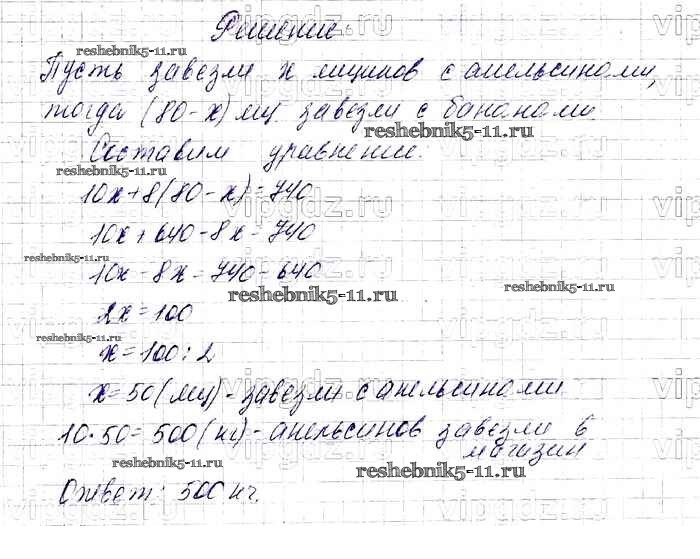 Решение
reshebnik5-11.ru
Пусть завезли x ящиков с апельсинами,
тогда (80-x) ящ завезли с бананами.
reshebnik5-11.ru
Составим уравнение.
reshebnik5-11.ru
10x+8(80-x)=740
10x+640-8x=740
reshebnik5-11.ru
10x-8x=740-640
reshebnik5-11.ru
reshebnik5-11.ru
2x=100
reshebnik5-11.ru
x=100:2
x=50(ящ)-завезли с апельсинами.
10·50=500(кг)-апельсинов завезли в
магазин
reshebnik5-11.ru
Ответ: 500 кг.
vipgdz.ru